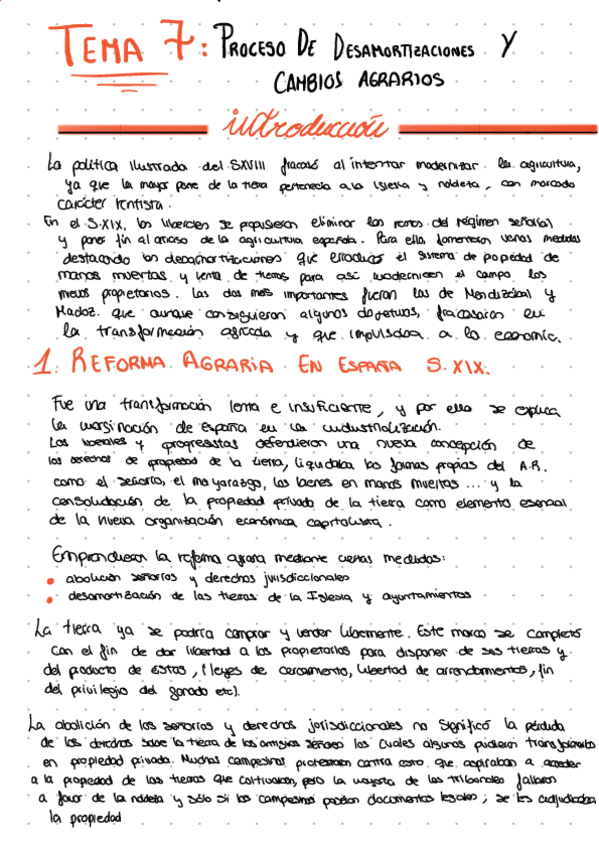 TEMA 7: PROCESO DE DESAMORTIZACIONES Y
CAMBIOS AGRARIOS
introducción
La política ilustrada del S.XVIII fracasó al intentar modernizar la agricultura,
ya que la mayor parte de la tierra pertenecía a la Iglesia y nobleta, con marcado
carácter rentista.
En el S.XIX, los liberales se propusieron eliminar los restos del régimen señorial
y poner fin al atraso de la agricultura española. Para ello, fomentaron varias medidas
destacando las desamortizaciones que erradicó el sistema de propiedad de
manos muertas y venta de tierras para así modernicen el campo los
nuevos propietarios. Las dos más importantes fueron las de Mendizábal y
Madoz. que aunque consiguieron algunos objetivos, fracasaron en
la transformación agrícola y que impulsada a la economía.
1. REFORMA AGRARIA EN ESPAÑA S.XIX.
Fue una transformación lenta e insuficiente, y por ello se explica
la marginación de España en la industrialización.
Los liberales y progresistas defendieron una nueva concepción de
los derechos de propiedad de la tierra, liquidaba las formas propias del A.R.
como el señorío, el mayorazgo, los bienes en manos muertas ... y la
consolidación de la propiedad privada de la tierra como elemento esencial
de la nueva organización económica capitalista.
Emprendieron la reforma agraria mediante ciertas medidas:
• abolición señoríos y derechos jurisdiccionales
• desamortización de las tierras de la Iglesia y ayuntamientos
La tierra ya se podría comprar y vender libremente. Este marco se completó
con el fin de dar libertad a los propietarios para disponer de sus tierras y
del producto de éstas, (leyes de cercamiento, libertad de arrendamientos, fin
del privilegio del ganado etc).
La abolición de los señoríos y derechos jurisdiccionales no significó la pérdida
de los derechos sobre la tierra de los antiguos señores los cuales algunos pudieron transformarlos
en propiedad privada. Muchos campesinos protestaron contra esto que aspiraban a acceder
a la propiedad de las tierras que cultivaban, pero la mayoría de los tribunales fallaron
a favor de la nobleta y sólo si los campesinos poseían documentos legales, se les adjudicaba
la propiedad